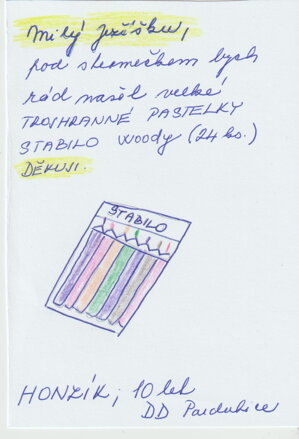 Milý Ježíšku,
pod stromečkem bych
rád našel velké
TROJHRANNÉ PASTELKY
STABILO woody (24 ks.)
DĚKUJI.
STABILO
HONZÍK, 10 let
DD Pardubice